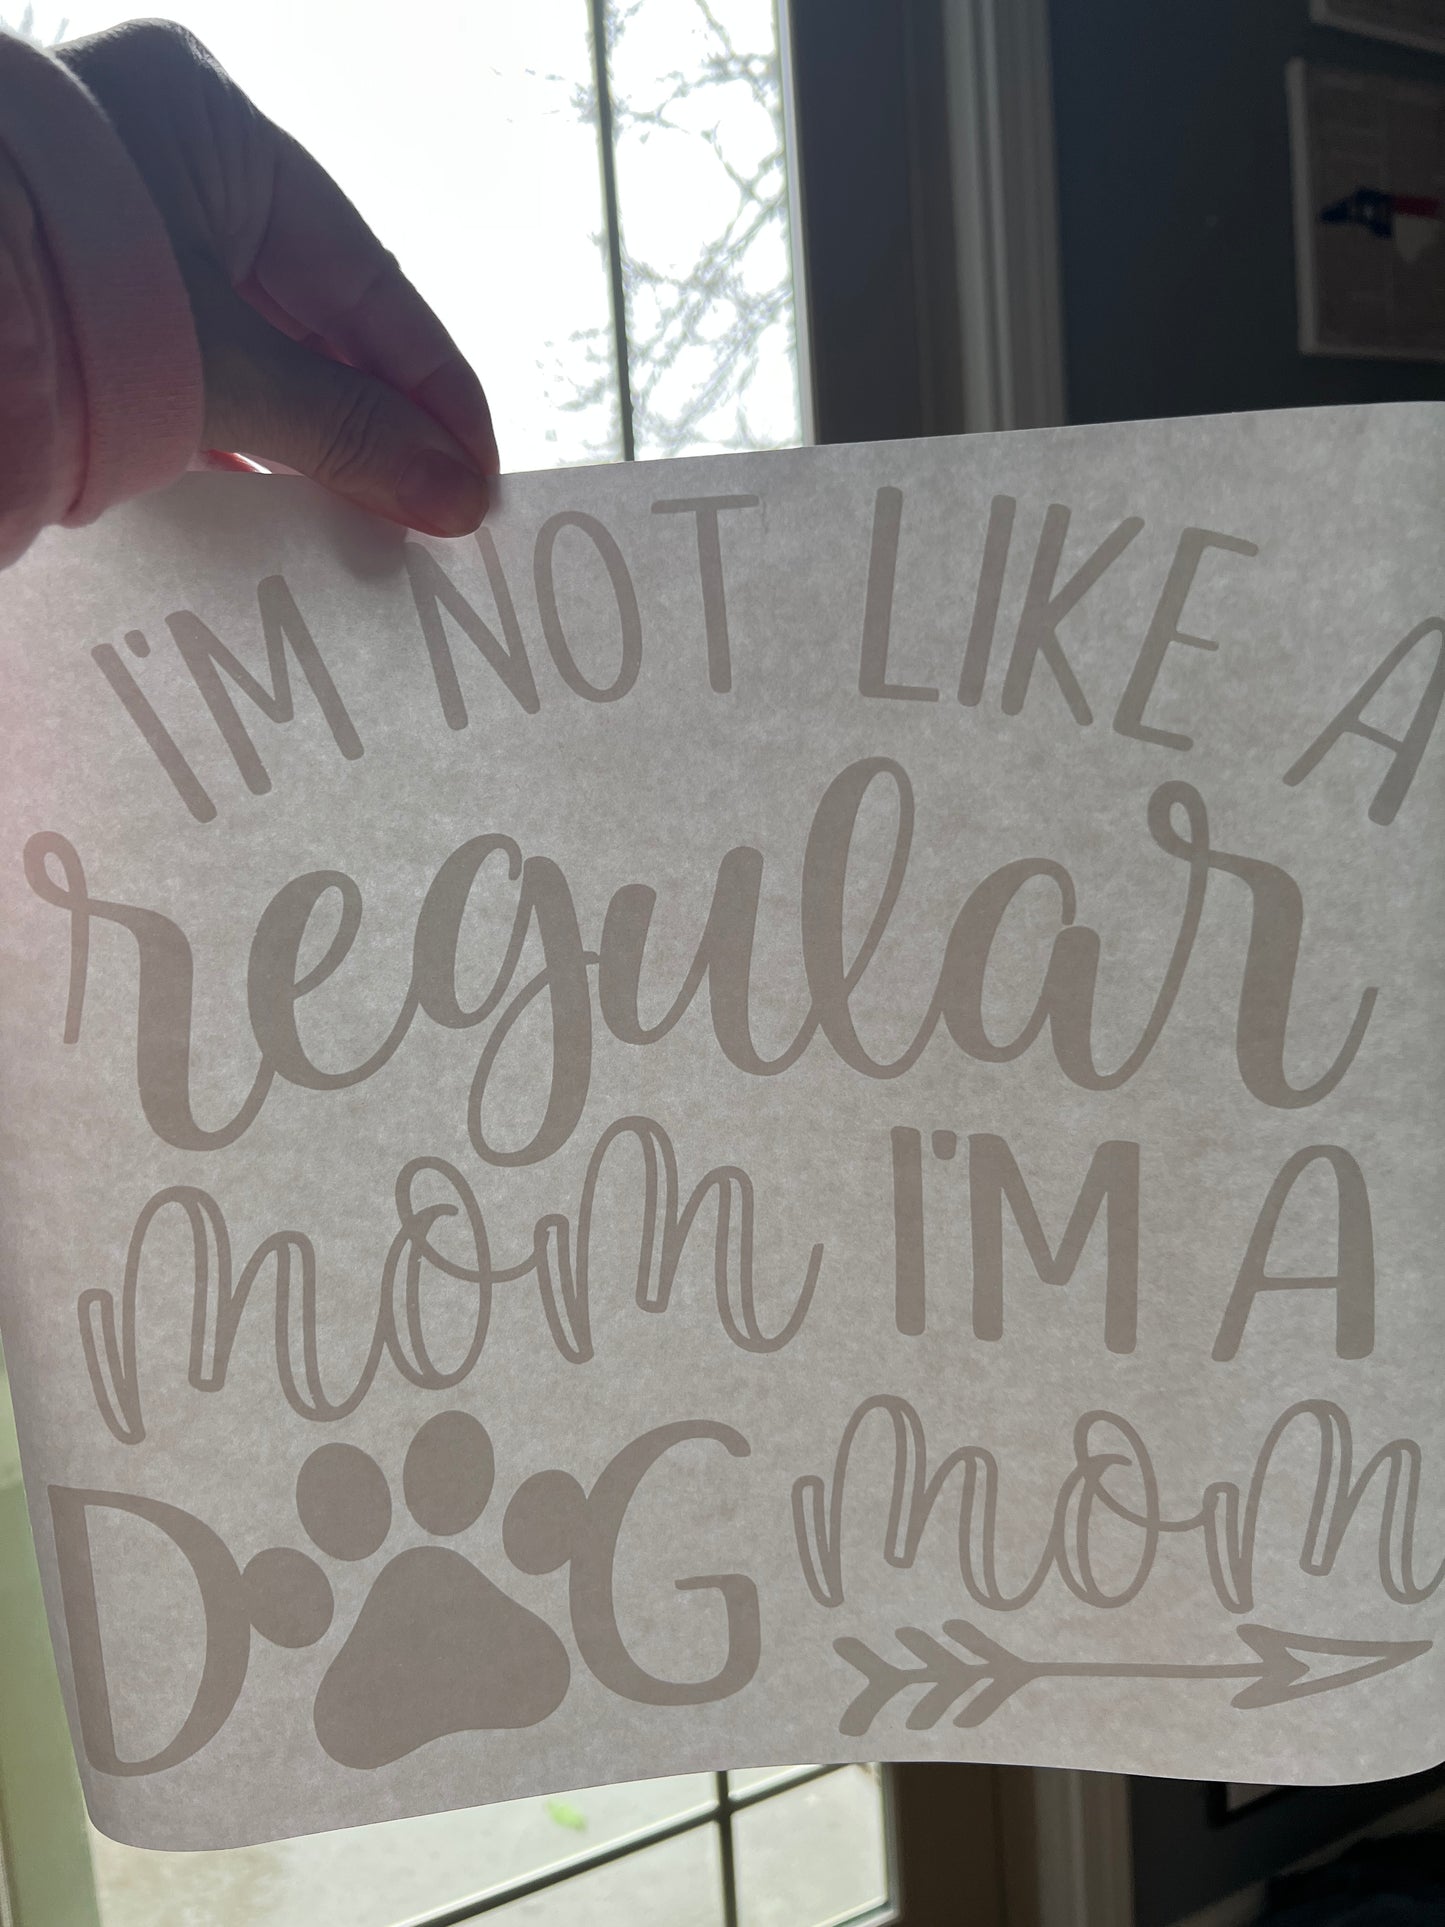 I'M NOT LIKE A
regular
mom I'M A
DOG mom